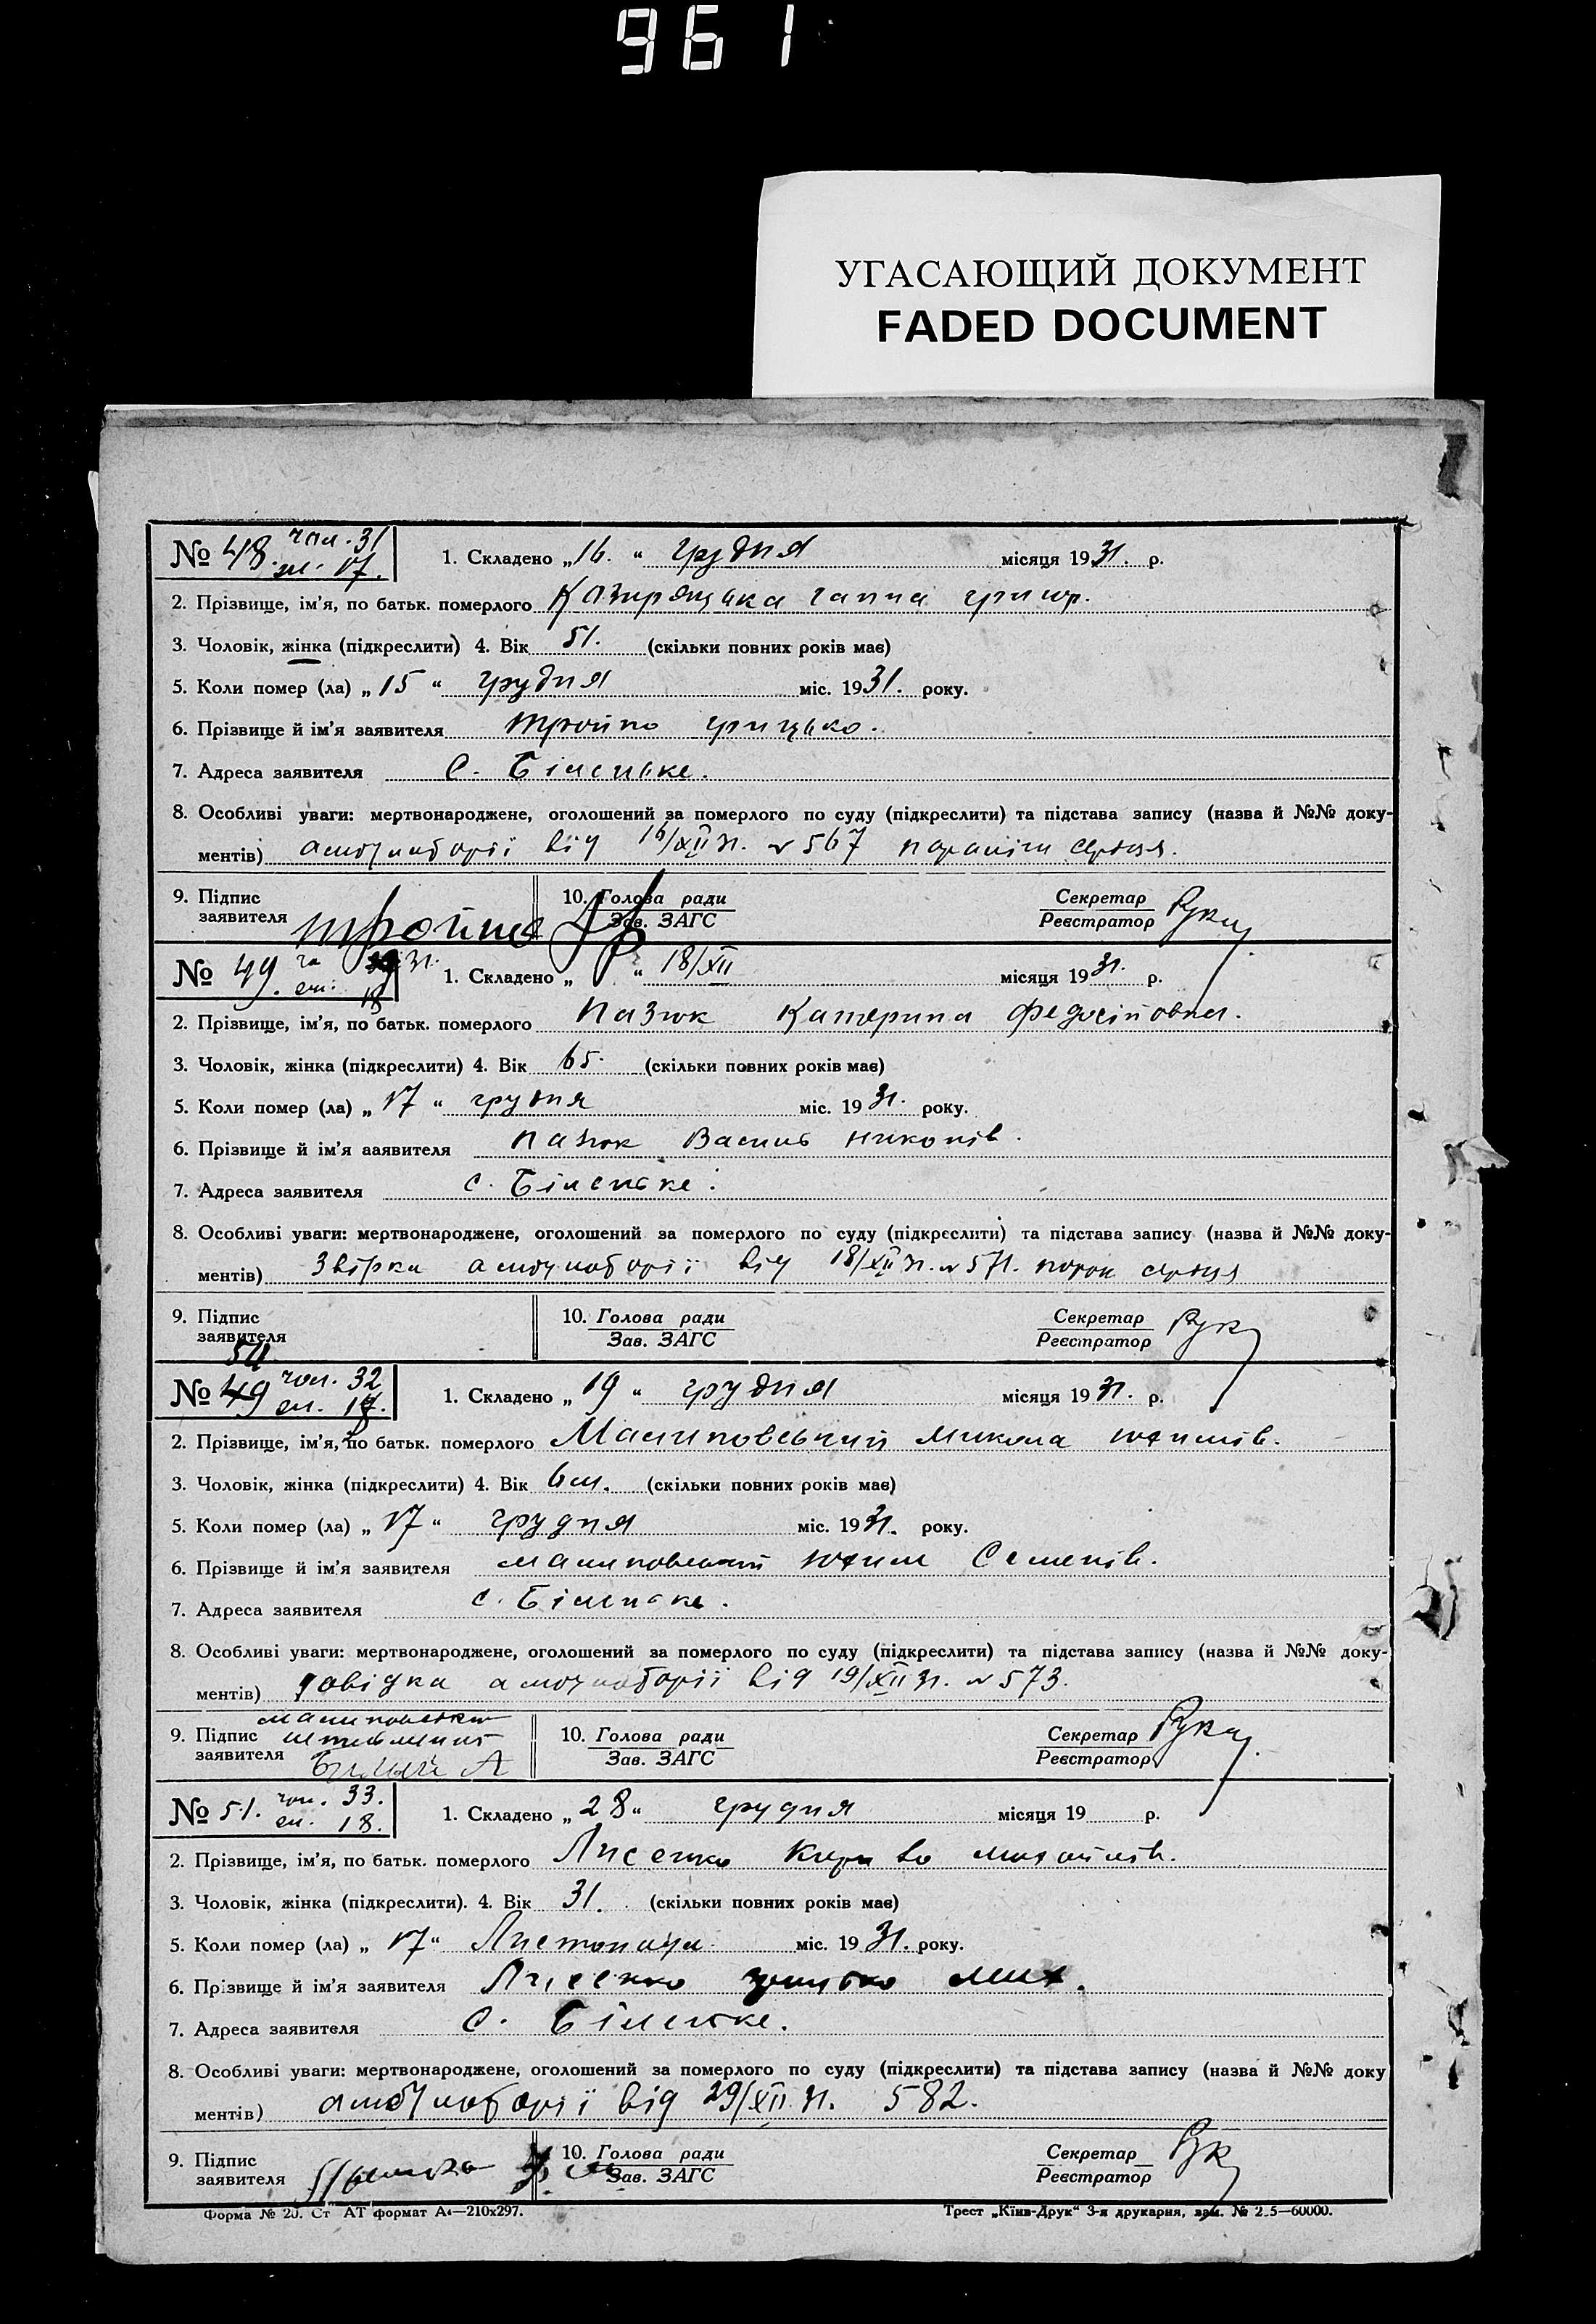 961
УГАСАЮЩИЙ ДОКУМЕНТ
FADED DOCUMENT
№ 48. чол. 31
жі. 17.
1. Складено „16. “ грудня місяця 1931. р.
2. Прізвище, ім'я, по батьк. померлого ганна григор.
3. Чоловік, жінка (підкреслити) 4. Вік 51. (скільки повних років має)
5. Коли помер (ла) „ 15 “ грудня міс. 1931. року.
6. Прізвище й ім'я заявителя грицько.
7. Адреса заявителя С. Біленьке.
8. Особливі уваги: мертвонароджене, оголошений за померлого по суду (підкреслити) та підстава запису (назва й №№ доку-
ментів) амбулаторії від 16/XII 31. № 567 параліч серця.
9. Підпис
заявителя
10. Голова ради
Зав. ЗАГС
Секретар
Реєстратор
№ 49. 31.
18
1. Складено „ “ 18/XII місяця 1931. р.
2. Прізвище, ім'я, по батьк. померлого Пазюк Катерина Федосіїовна.
3. Чоловік, жінка (підкреслити) 4. Вік 65. (скільки повних років має)
5. Коли помер (ла) „ 17 “ грудня міс. 1931. року.
6. Прізвище й ім'я заявителя Пазюк Василь никонів.
7. Адреса заявителя с. Біленьке.
8. Особливі уваги: мертвонароджене, оголошений за померлого по суду (підкреслити) та підстава запису (назва й №№ доку-
ментів) амбулаторії від 18/XII 31. № 571. порок серця
9. Підпис
заявителя
10. Голова ради
Зав. ЗАГС
Секретар
Реєстратор
50
№ 49 чол. 32
жі. 17.
1. Складено „ 19 “ грудня місяця 1931. р.
2. Прізвище, ім'я, по батьк. померлого Малиновський Микола юхимів.
3. Чоловік, жінка (підкреслити) 4. Вік 6 м. (скільки повних років має)
5. Коли помер (ла) „ 17 “ грудня міс. 1931. року.
6. Прізвище й ім'я заявителя малиновський юхим Семенів.
7. Адреса заявителя с. Біленьке.
8. Особливі уваги: мертвонароджене, оголошений за померлого по суду (підкреслити) та підстава запису (назва й №№ доку-
ментів) довідка амбулаторії від 19/XII 31. № 573.
9. Підпис
заявителя
10. Голова ради
Зав. ЗАГС
Секретар
Реєстратор
№ 51. чол. 33.
жі. 18.
1. Складено „ 28 “ грудня місяця 19 р.
2. Прізвище, ім'я, по батьк. померлого Лисенко михайлів.
3. Чоловік, жінка (підкреслити). 4. Вік 31. (скільки повних років має)
5. Коли помер (ла) „ 17 “ Листопада міс. 1931. року.
6. Прізвище й ім'я заявителя Лисенко мих.
7. Адреса заявителя С. Біленьке.
8. Особливі уваги: мертвонароджене, оголошений за померлого по суду (підкреслити) та підстава запису (назва й №№ доку
ментів) амбулаторії від 29/XII 31. 582.
9. Підпис
заявителя
10. Голова ради
Зав. ЗАГС
Секретар
Реєстратор
Форма № 20. Ст АТ формат А4—210х297.
Трест „Київ-Друк“ 3-я друкарня, зам. № 2.5—60000.